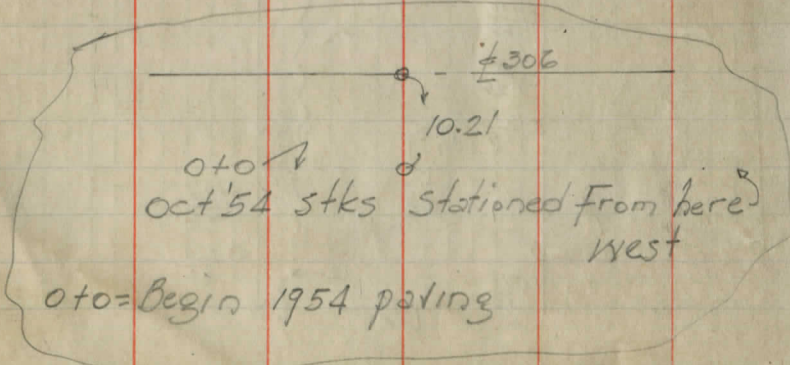 ℄ 306
10.21
0+0
Oct '54 stks stationed from here
west
0+0 = Begin 1954 paving